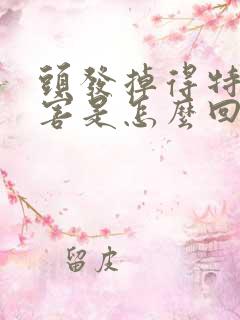 頭發掉得特
害是怎麼回
留皮